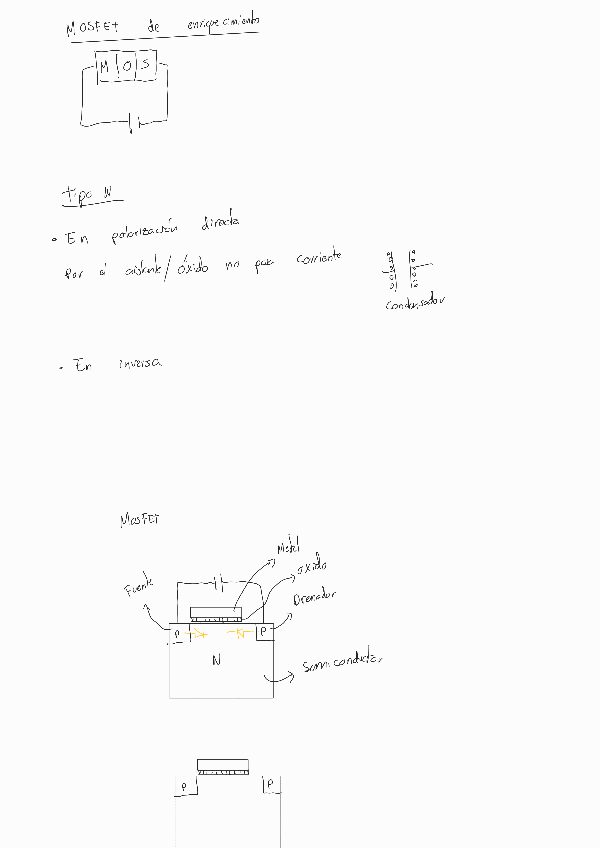 MOSFET de enriquecimiento
M O S
tipo N
• En polarización directa
Por el aislante/óxido no pasa corriente
Condensador
• En inversa
MOSFET
Metal
óxido
Fuente
Drenador
P P
N
Semiconductor
P P